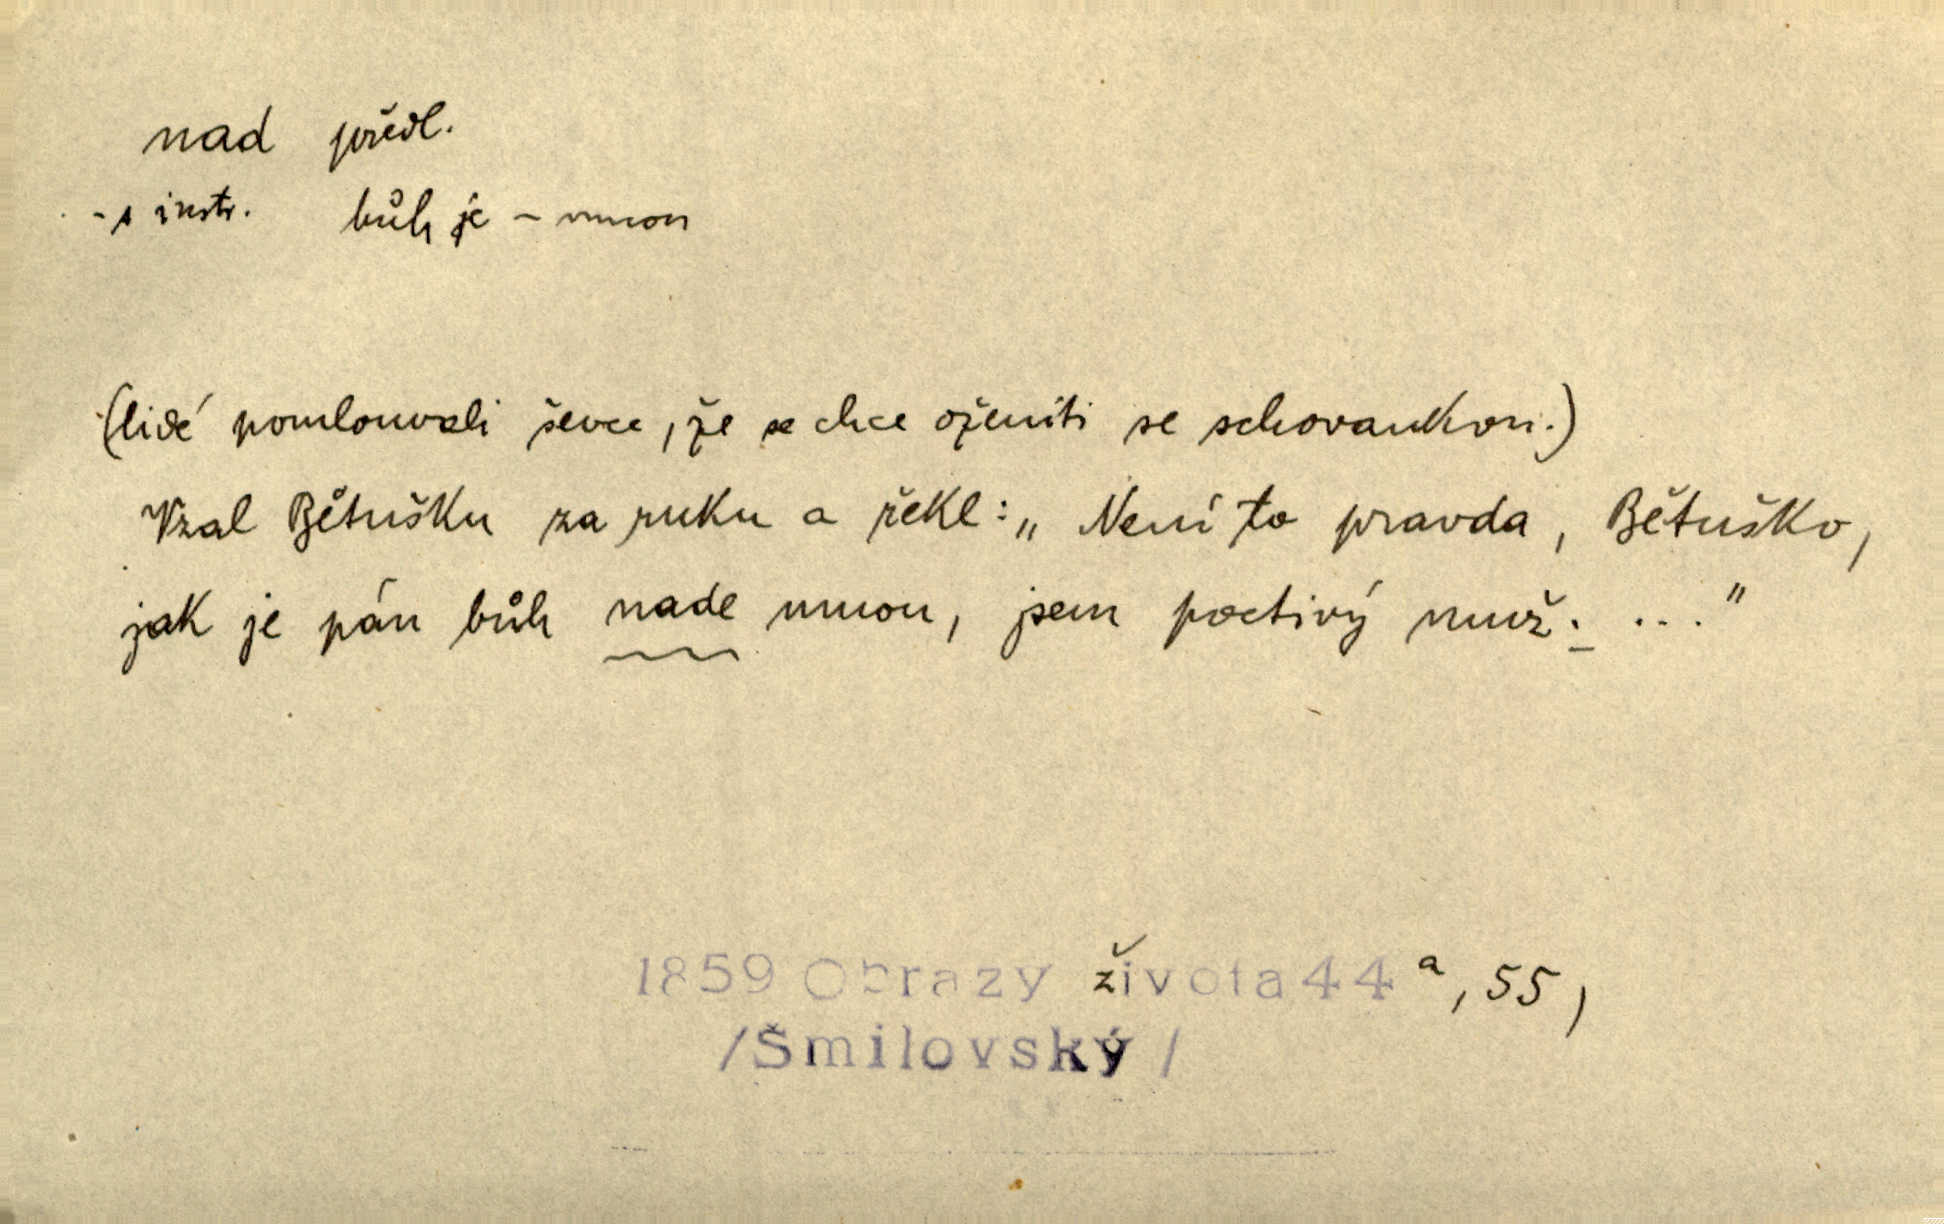 nad předl.
- s instr. bůh je - mnou
(lidé pomlouvali ševce, že se chce oženiti se schovankou.)
Vzal Bětušku za ruku a řekl: „Není to pravda, Bětuško,
jak je pán bůh nade mnou, jsem poctivý muž. ..."
1859 Obrazy života 44 a, 55,
/Šmilovský/